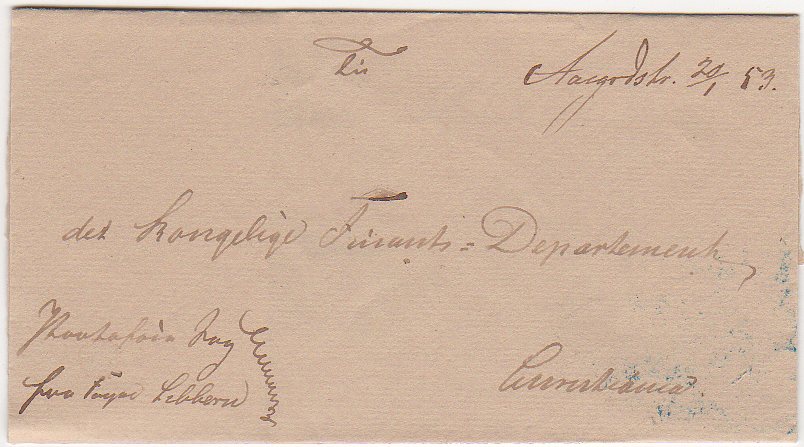 Til
20/1 53.
det Kongelige Finants-Departement
Portofrie Sag
fra Foged
Christiania.